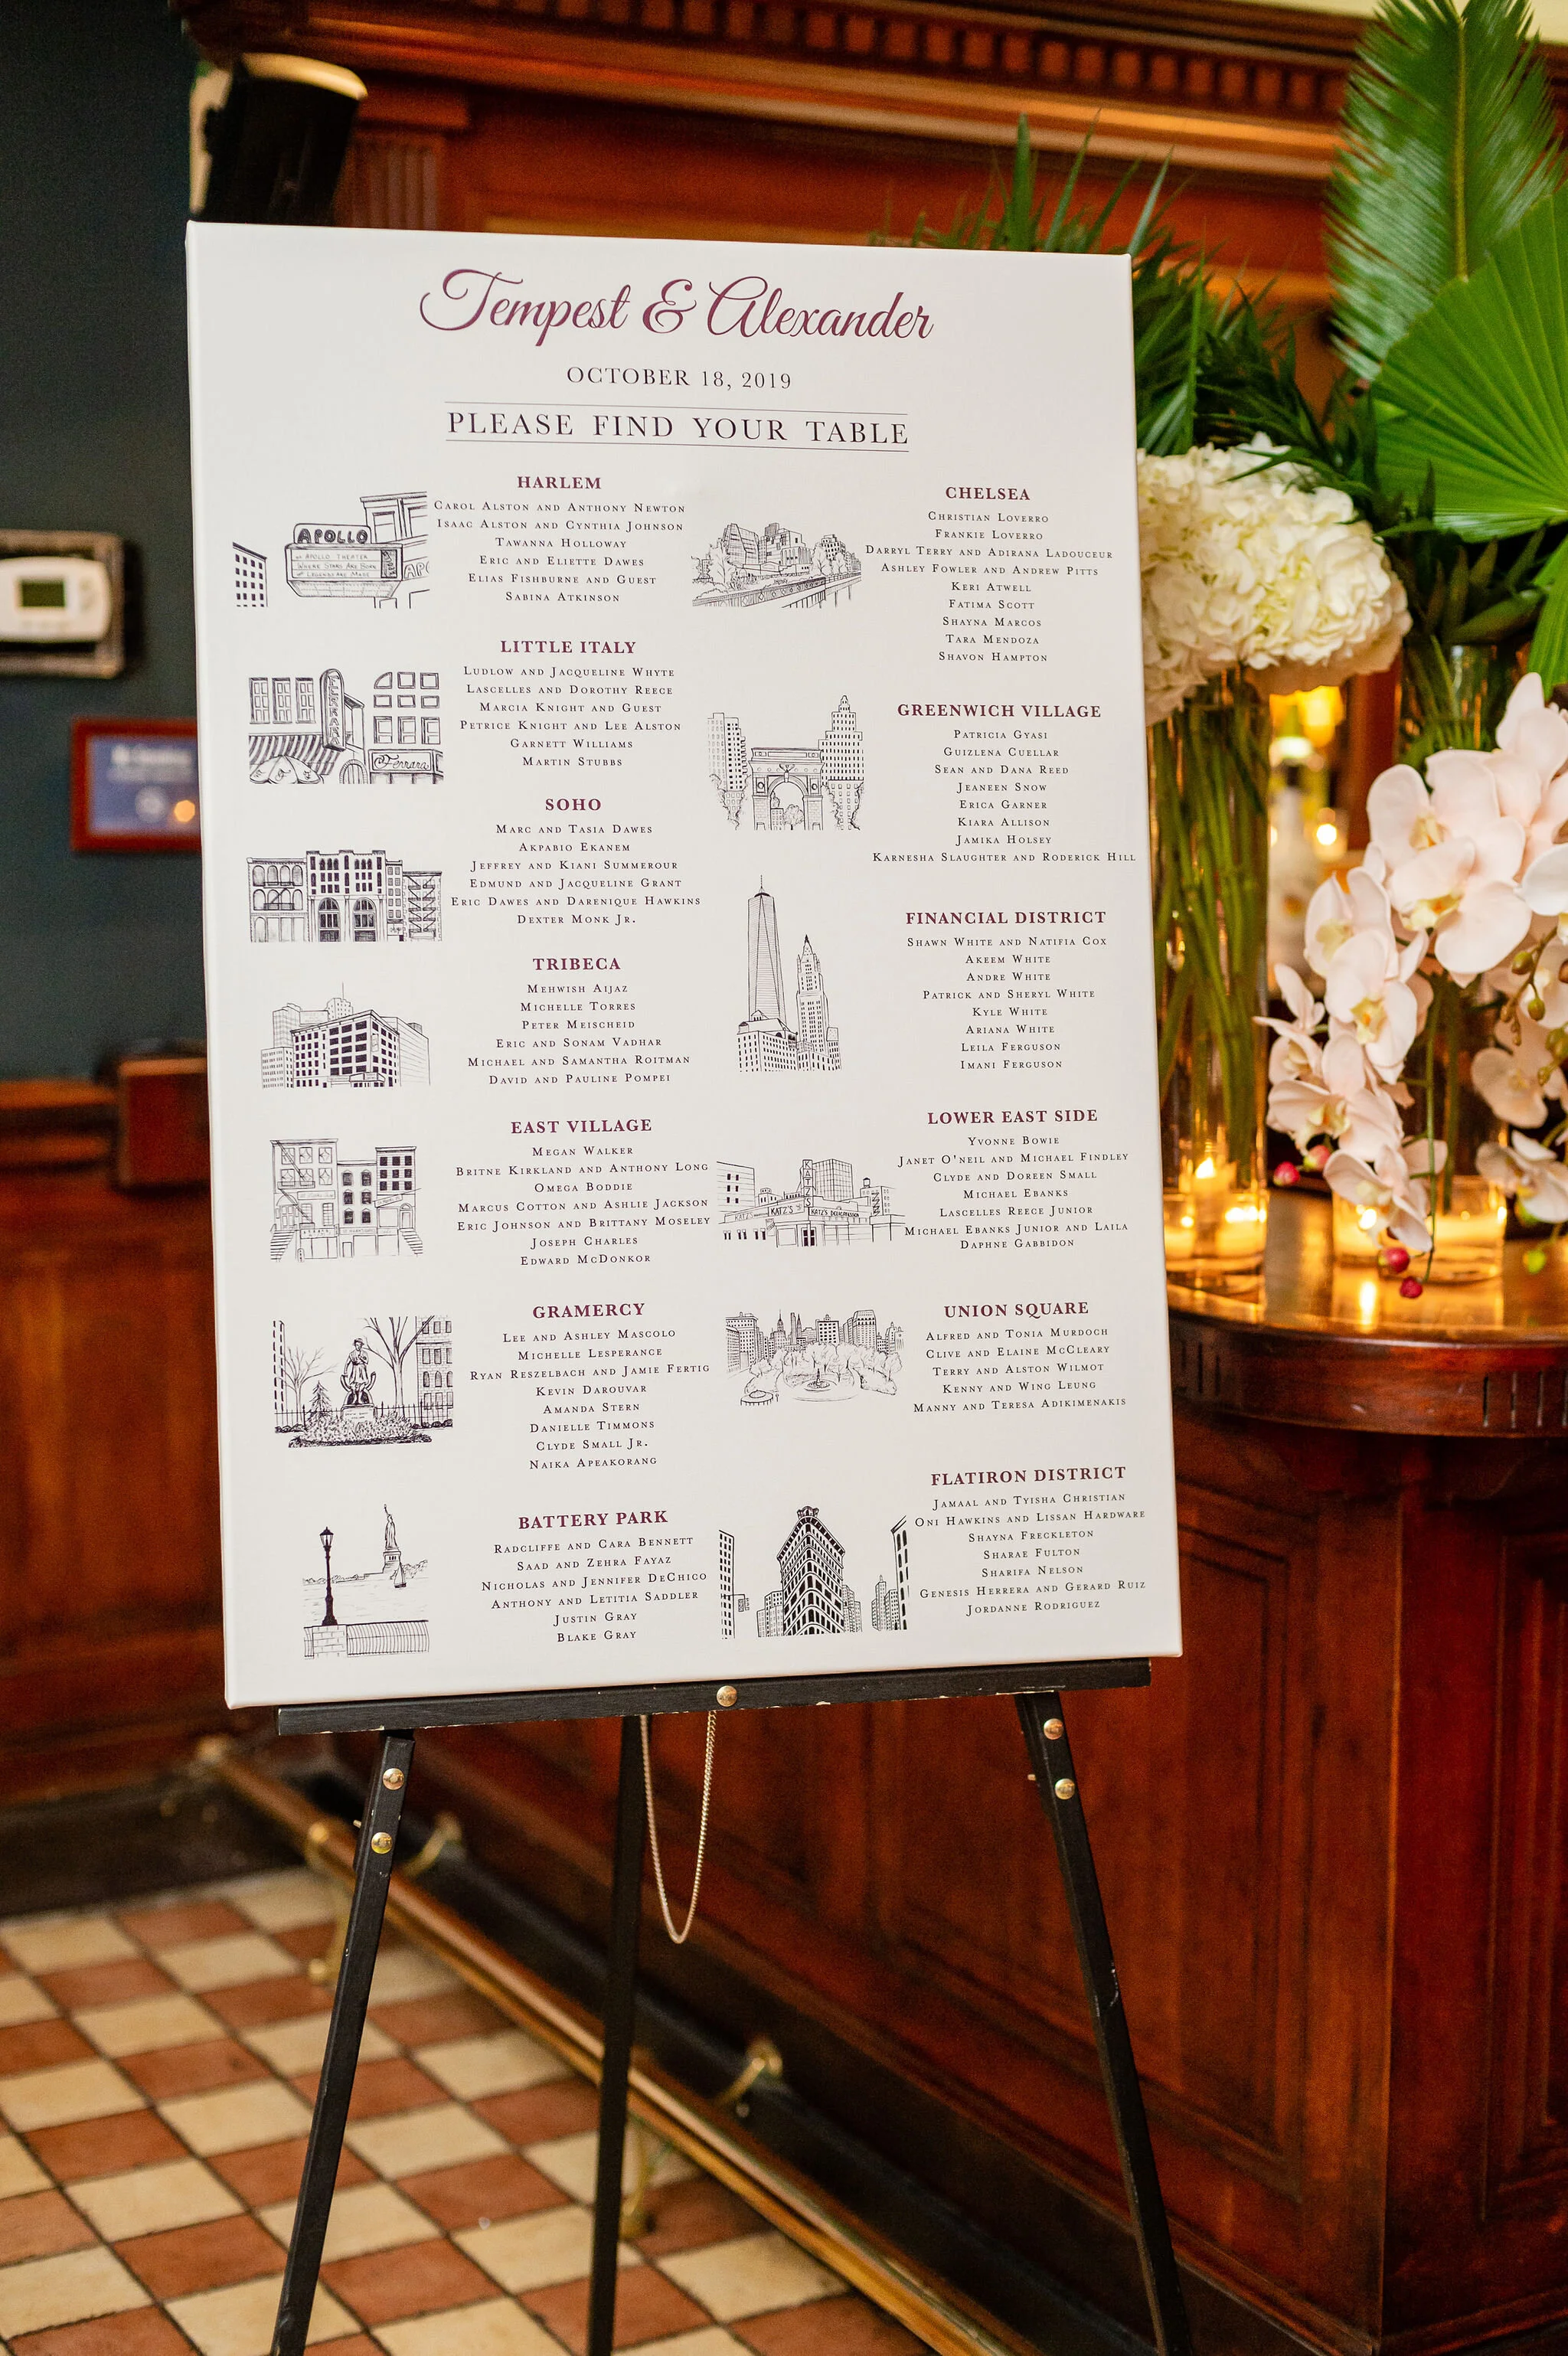 Tempest & Alexander
OCTOBER 18, 2019
PLEASE FIND YOUR TABLE
HARLEM
CAROL ALSTON AND ANTHONY NEWTON
ISAAC ALSTON AND CYNTHIA JOHNSON
TAWANNA HOLLOWAY
ERIC AND ELIETTE DAWES
ELIAS FISHBURNE AND GUEST
SABINA ATKINSON
APOLLO
APOLLO THEATER
WHERE STARS ARE BORN
LEGENDS ARE MADE
LITTLE ITALY
LUDLOW AND JACQUELINE WHYTE
LASCELLES AND DOROTHY REECE
MARCIA KNIGHT AND GUEST
PETRICE KNIGHT AND LEE ALSTON
GARNETT WILLIAMS
MARTIN STUBBS
FERRARA
Ferrara
SOHO
MARC AND TASIA DAWES
AKPABIO EKANEM
JEFFREY AND KIANI SUMMEROUR
EDMUND AND JACQUELINE GRANT
ERIC DAWES AND DARENIQUE HAWKINS
DEXTER MONK JR.
TRIBECA
MEHWISH AIJAZ
MICHELLE TORRES
PETER MEISCHEID
ERIC AND SONAM VADHAR
MICHAEL AND SAMANTHA ROITMAN
DAVID AND PAULINE POMPEI
EAST VILLAGE
MEGAN WALKER
BRITNE KIRKLAND AND ANTHONY LONG
OMEGA BODDIE
MARCUS COTTON AND ASHLIE JACKSON
ERIC JOHNSON AND BRITTANY MOSELEY
JOSEPH CHARLES
EDWARD MCDONKOR
GRAMERCY
LEE AND ASHLEY MASCOLO
MICHELLE LESPERANCE
RYAN RESZELBACH AND JAMIE FERTIG
KEVIN DAROUVAR
AMANDA STERN
DANIELLE TIMMONS
CLYDE SMALL JR.
NAIKA APEAKORANG
BATTERY PARK
RADCLIFFE AND CARA BENNETT
SAAD AND ZEHRA FAYAZ
NICHOLAS AND JENNIFER DECHICO
ANTHONY AND LETITIA SADDLER
JUSTIN GRAY
BLAKE GRAY
CHELSEA
CHRISTIAN LOVERRO
FRANKIE LOVERRO
DARRYL TERRY AND ADIRANA LADOUCEUR
ASHLEY FOWLER AND ANDREW PITTS
KERI ATWELL
FATIMA SCOTT
SHAYNA MARCOS
TARA MENDOZA
SHAVON HAMPTON
GREENWICH VILLAGE
PATRICIA GYASI
GUIZLENA CUELLAR
SEAN AND DANA REED
JEANEEN SNOW
ERICA GARNER
KIARA ALLISON
JAMIKA HOLSEY
KARNESHA SLAUGHTER AND RODERICK HILL
FINANCIAL DISTRICT
SHAWN WHITE AND NATIFIA COX
AKEEM WHITE
ANDRE WHITE
PATRICK AND SHERYL WHITE
KYLE WHITE
ARIANA WHITE
LEILA FERGUSON
IMANI FERGUSON
LOWER EAST SIDE
YVONNE BOWIE
JANET O'NEIL AND MICHAEL FINDLEY
CLYDE AND DOREEN SMALL
MICHAEL EBANKS
LASCELLES REECE JUNIOR
MICHAEL EBANKS JUNIOR AND LAILA
DAPHNE GABBIDON
KATZ'S
KATZ'S
KATZ'S
UNION SQUARE
ALFRED AND TONIA MURDOCH
CLIVE AND ELAINE MCCLEARY
TERRY AND ALSTON WILMOT
KENNY AND WING LEUNG
MANNY AND TERESA ADIKIMENAKIS
FLATIRON DISTRICT
JAMAAL AND TYISHA CHRISTIAN
ONI HAWKINS AND LISSAN HARDWARE
SHAYNA FRECKLETON
SHARAE FULTON
SHARIFA NELSON
GENESIS HERRERA AND GERARD RUIZ
JORDANNE RODRIGUEZ